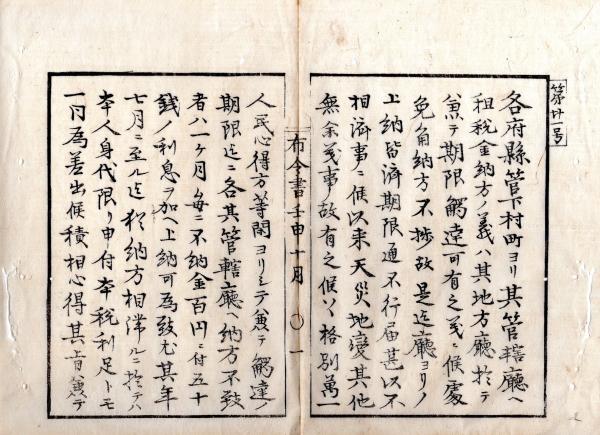 第廿一号
各府縣管下村町ヨリ其管轄廳ヘ
租税金納方ノ義ハ其地方廳於テ
兼テ期限觸達可有之義ニ候處
兎角納方不捗故是迄廳ヨリノ
上納皆済期限通不行届甚以不
相済事ニ候以来天災地變其他
無余義事故有之候ハヾ格別萬一
布令書壬申十月 〇 一
人民心得方等閑ヨリシテ兼テ觸達ノ
期限迄ニ各其管轄廳ヘ納方不致
者ハ一ヶ月毎ニ不納金百円ニ付五十
銭ノ利息ヲ加ヘ上納可為致尤其年
七月ニ至ル迄猶納方相滞ルニ於テハ
本人身代限リ申付本税利足トモ
一同為差出候積相心得其旨兼テ